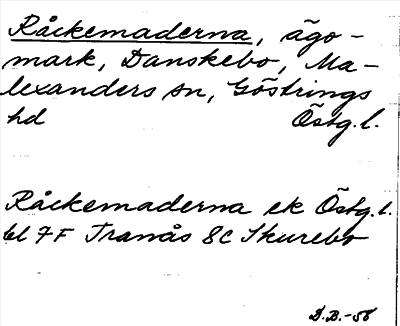 Råckemaderna, ägo-
mark, Danskebo, Ma-
lexanders sn, Göstrings
hd Östg.l.
Råckemaderna ek Östg.l.
bl 7F Tranås 8c Skurebo
D.B.-58